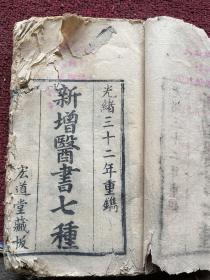 光緒三十二年重鐫
新增醫書七種
宏道堂藏板